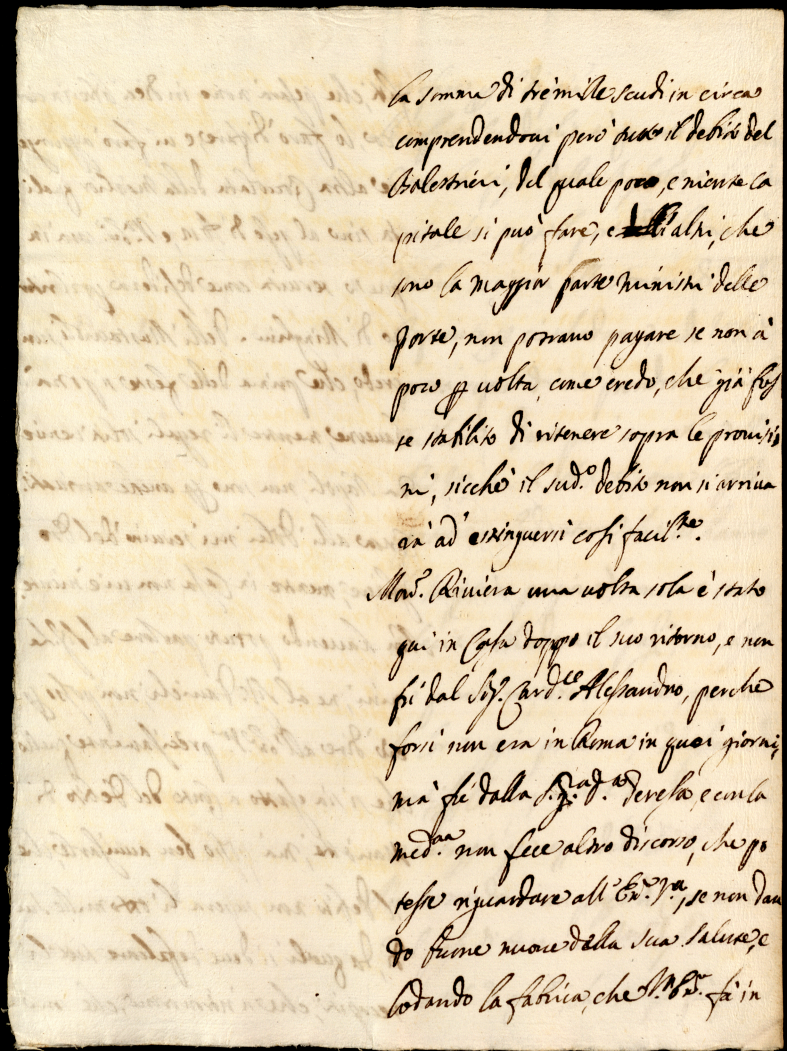 la somma di trè mille scudi in circa
comprendendoui però tutto il debito del
Balestrieri, del quale poco, e niente ca
pitale si può fare, e li altri, che
sono la maggior parte ministri delle
porte, non potrano pagare se non à
poco p uolta, come credo, che già fos
se stabilito di ritenere sopra le prouisio
ni, sicchè il sud.º debito non si arriua
rà ad estinguersi così facil.te.
Mons.r Riuiera una uolta sola è stato
qui in Casa doppo il suo ritorno, e non
fù dal Sig.r Card.le Alessandro, perche
forsi non era in Roma in quei giorni,
mà fù dalla S.ra d.a Teresa, e con la
med.ma non fece altro discorso, che po
tesse riguardare all' Em. V.a, se non dan
do buone nuoue della sua salute, e
lodando la fabrica, che V. Em. fà in